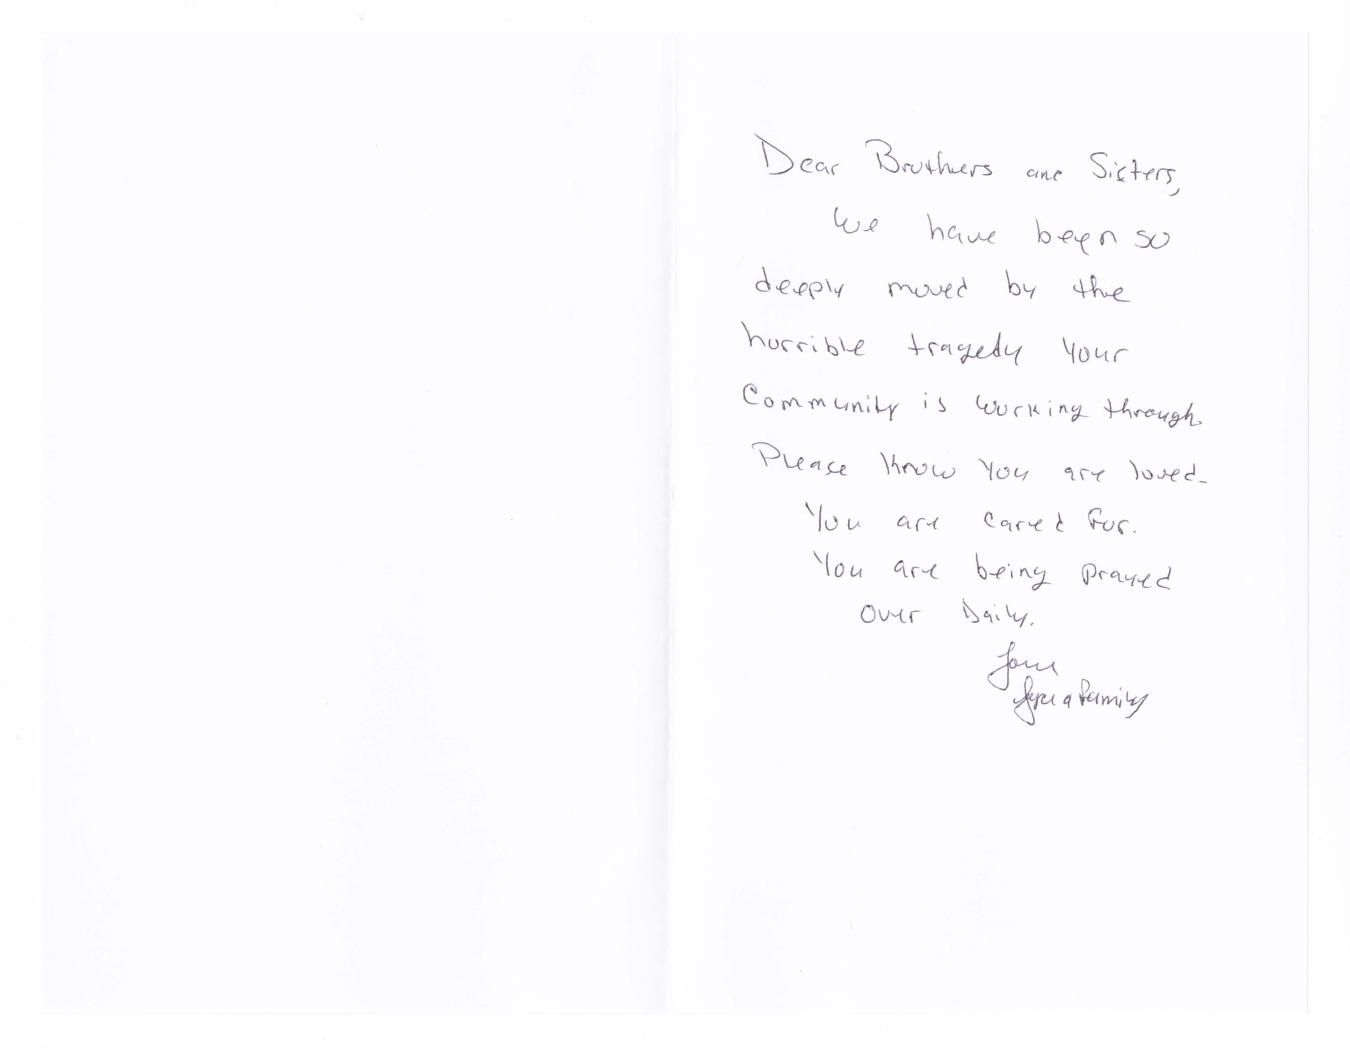 Dear Brothers and Sisters,
We have been so
deeply moved by the
horrible tragedy your
Community is working through.
Please know you are loved.
You are cared for.
You are being prayed
over Daily.
family